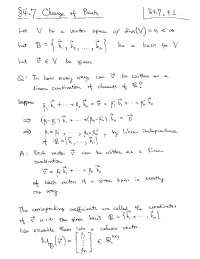 §4.7 Change of Basis
§4.7, #1
Let V be a vector space w/ dim(V) = n < ∞
Let B = { b₁, b₂, ..., bₙ } be a basis for V
Let v ∈ V be given
Q: In how many ways can v be written as a
linear combination of elements of B?
Suppose β₁ b₁ + ... + βₙ bₙ = v = β₁' b₁ + ... + βₙ' bₙ
⇒ (β₁ - β₁') b₁ + ... + (βₙ - βₙ') bₙ = 0
⇒ β₁ = β₁', ..., βₙ = βₙ' by linear independence
of B = { b₁, ..., bₙ }
A: Each vector v can be written as a linear
combination
v = β₁ b₁ + ... + βₙ bₙ
of basis vectors in exactly
one way.
The corresponding coefficients are called the coordinates
of v w.r.t. the given basis B = { b₁, ..., bₙ }
We assemble them into a column vector
(v) = [ β₁ ⋮ βₙ ] ∈